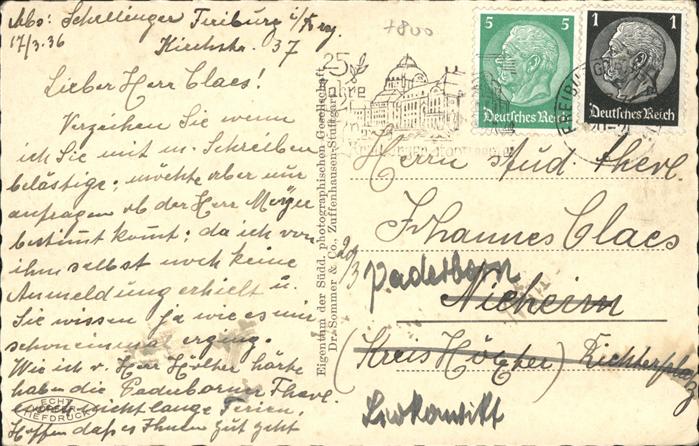 Abs: Schellinger Freiburg i/Brg.
17/3.36 Kirchstr. 37
Lieber Herr Claes!
Verzeihen Sie wenn
ich Sie mit m. Schreiben
belästige; möchte aber nur
anfragen ob der Herr
bestimt komt; da ich von
ihm selbst noch keine
Anmeldung erhielt u.
Sie wissen ja wie es mir
schoneinmal erging.
Wie ich v. Herr Hölther hörte
haben die Paderborner Theol.
nicht lange Ferien.
Hoffen daß es Ihnen gut geht
ECHT
TIEFDRUCK
Eigentum der Südd. photographischen Gesellschaft
Dr. Sommer & Co., Zuffenhausen-Stuttgart
+800
25
Jahre
5 5
Deutsches Reich
1 1
Deutsches Reich
FREIBURG
Herrn stud theol.
Johannes Claes
20/3
Paderborn
Nieheim
(Kreis Höxter) Richterplatz